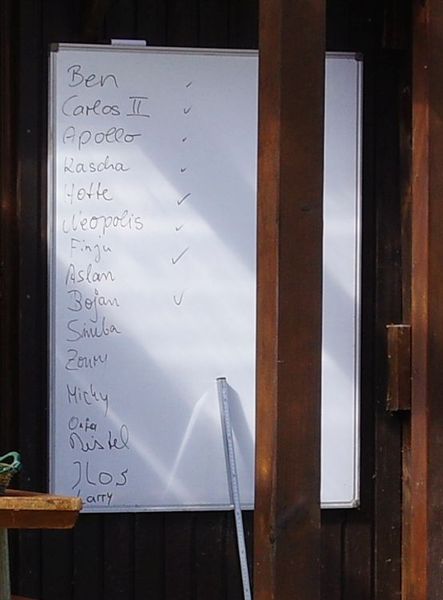 Ben ✓
Carlos II ✓
Apollo ✓
Kascha ✓
Hotte ✓
Neopolis ✓
Finju ✓
Aslan
Bojan ✓
Simba
Micky
Mistel
Ilos
Larry